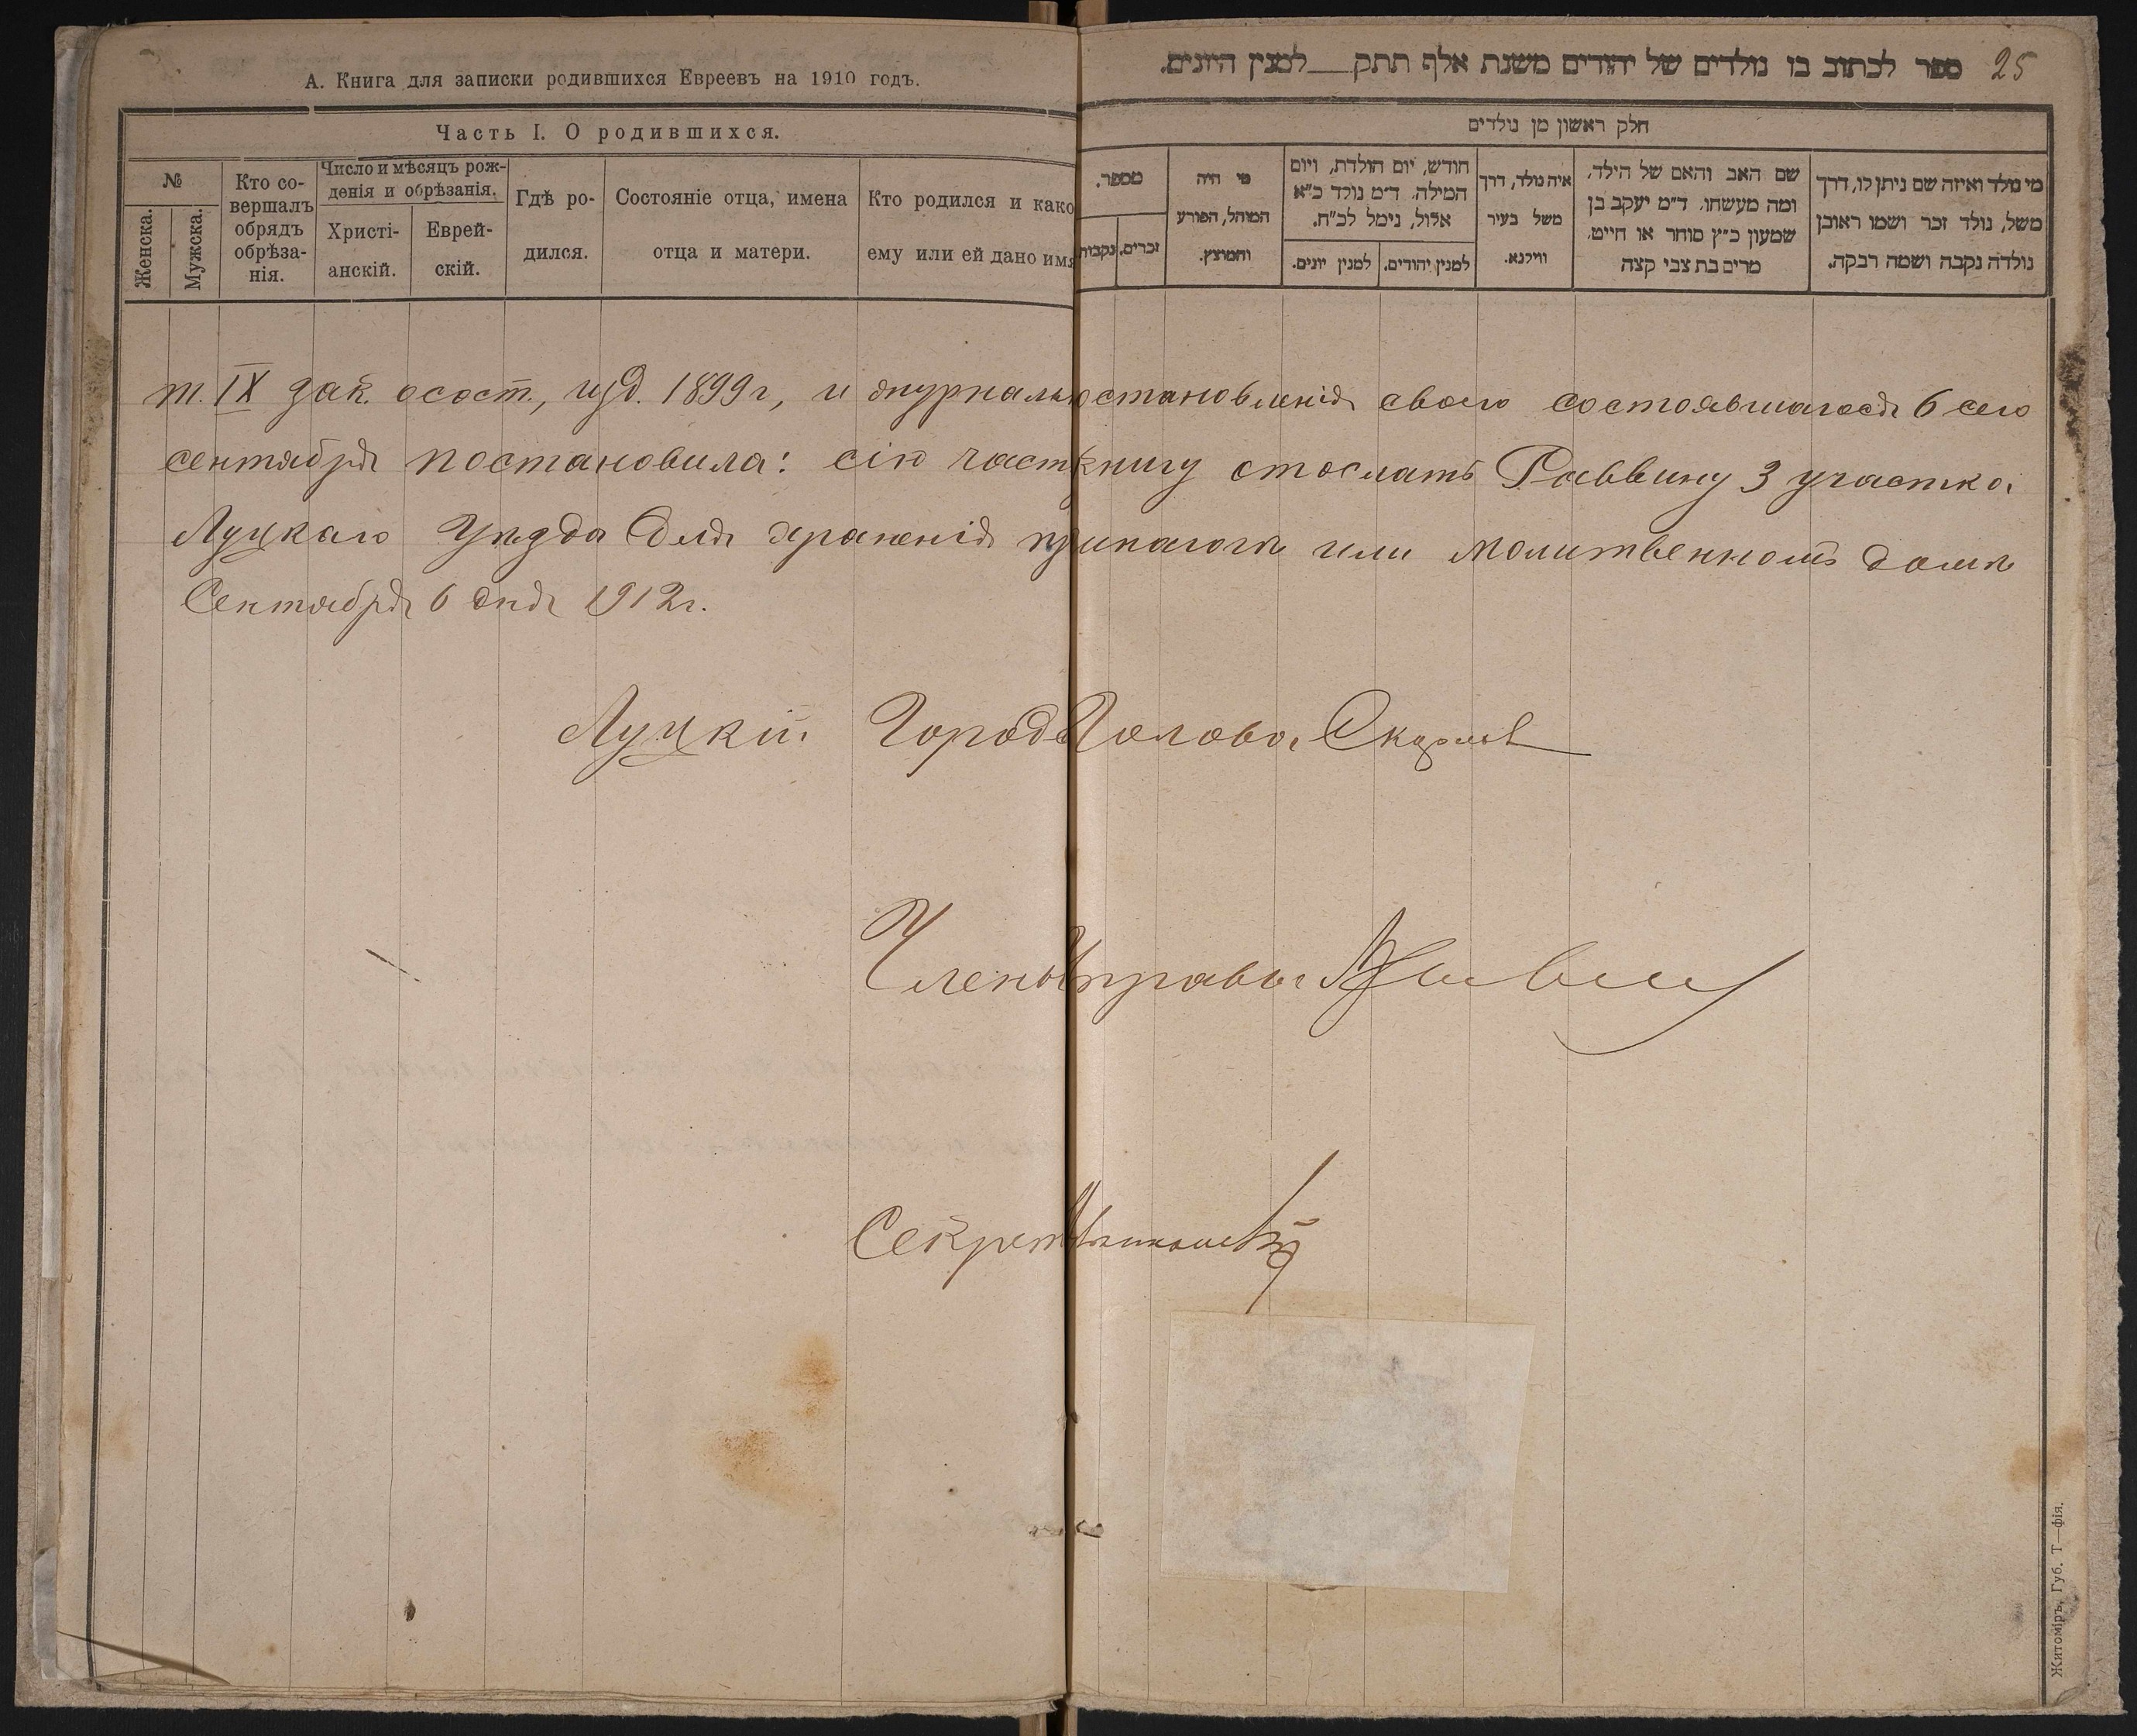 А. Книга для записки родившихся Евреевъ на 1910 годъ.
Часть I. О родившихся.
№
Женска.
Мужска.
Кто со-
вершалъ
обрядъ
обрѣза-
нія.
Число и мѣсяцъ рож-
денія и обрѣзанія.
Христі-
анскій.
Еврей-
скій.
Гдѣ ро-
дился.
Состояніе отца, имена
отца и матери.
Кто родился и како
ему или ей дано имя
ספר לכתוב בו נולדים של יהודים משנת אלף תתק___למנין היונים.
25
חלק ראשון מן נולדים
מספר.
נקבות
זכרים.
מי היה
המוהל, הפורע
והמוצץ.
חודש, יום הולדת, ויום
המילה. ד״מ נולד כ״א
אלול, נימל לכ״ח.
למנין יונים.
למנין יהודים.
איה נולד, דרך
משל בעיר
ווילנא.
שם האב והאם של הילד,
ומה מעשהו. ד״מ יעקב בן
שמעון כ״ץ סוחר או חייט.
מרים בת צבי קצה
מי נולד ואיזה שם ניתן לו, דרך
משל, נולד זכר ושמו ראובן
נולדה נקבה ושמה רבקה.
т. IX зак. о сост., изд. 1899 г., и журналь остановленія своего состоявшагося 6 сего
сентября постановила: сію част книгу отослать Раввину 3 участка
Луцкаго Уѣзда для храненія инагогѣ или молитвенномъ домѣ
Сентября 6 дня 1912 г.
Луцкій Город Голова
Члены Управы
Секрет
Житоміръ, Губ. Т—фія.